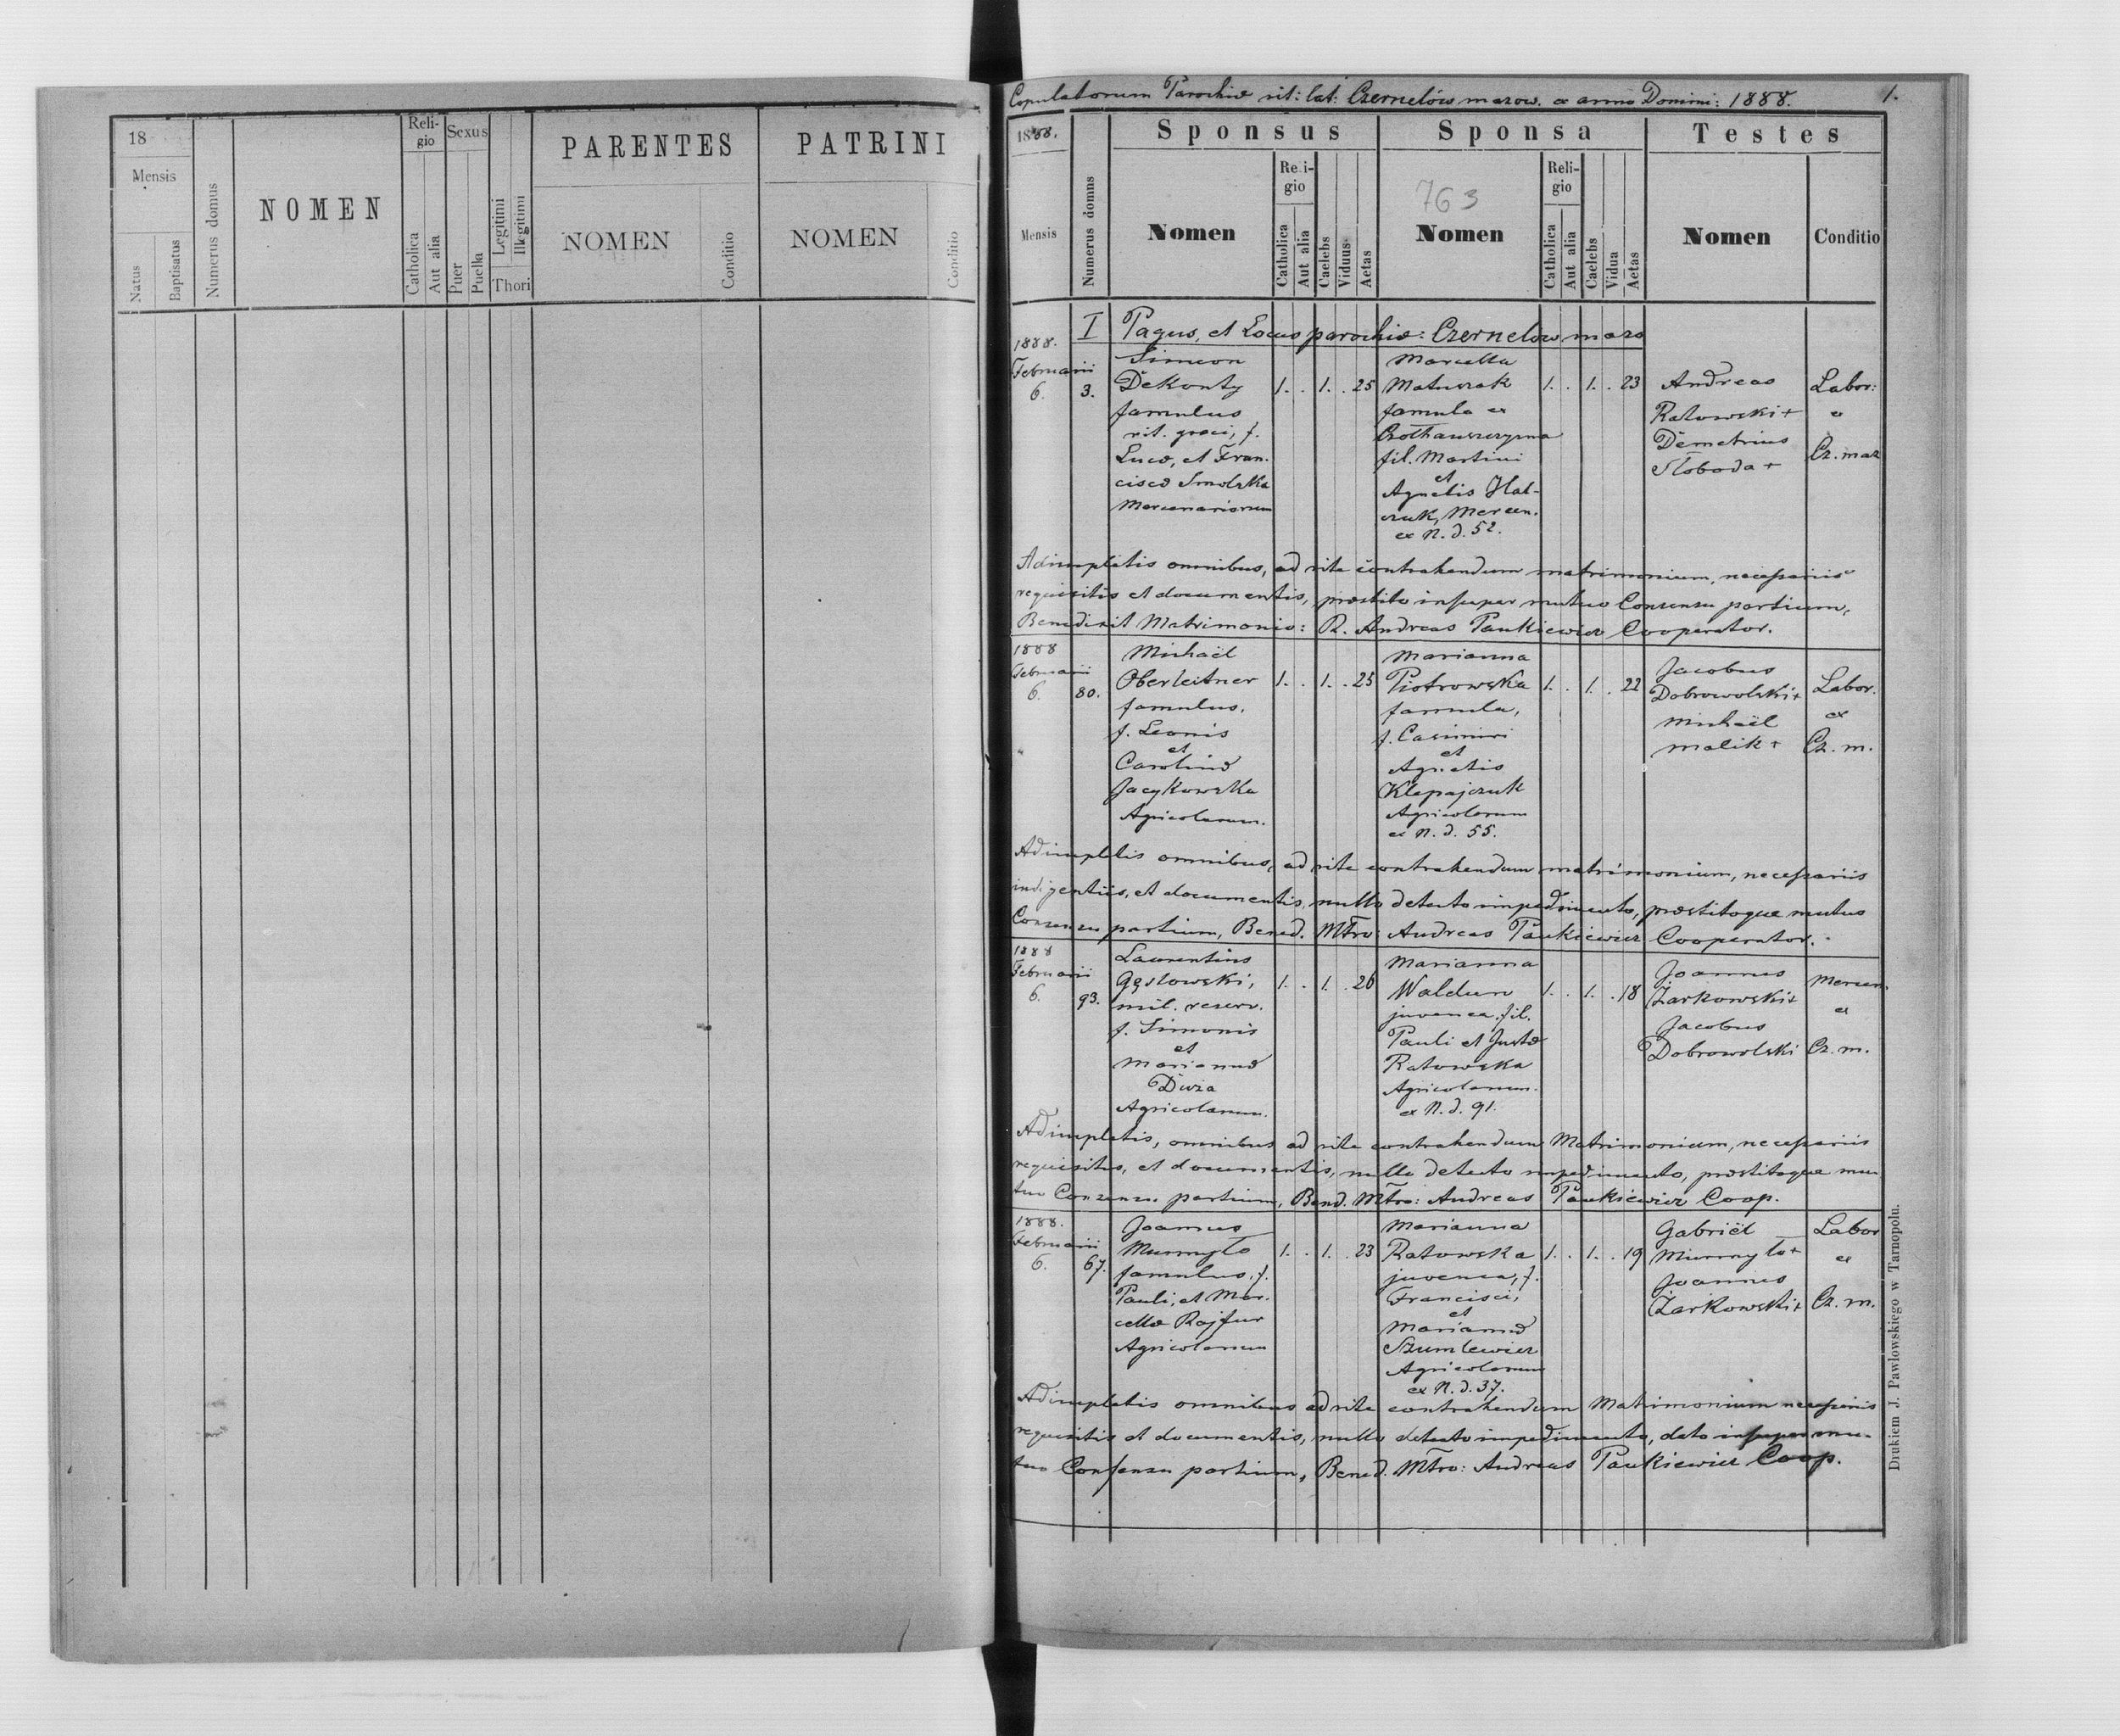 18
Mensis
Natus
Baptisatus
Numerus domus
NOMEN
Reli-
gio
Catholica
Aut alia
Sexus
Puer
Puella
Legitimi
Illegitimi
Thori
PARENTES
NOMEN
Conditio
PATRINI
NOMEN
Conditio
Copulatorum Parochiæ rit: lat: Czernelów mazow. ex anno Domini: 1888.
1.
1888.
Mensis
Numerus domus
Sponsus
Nomen
Reli-
gio
Catholica
Aut alia
Caelebs
Viduus
Aetas
Sponsa
763
Nomen
Reli-
gio
Catholica
Aut alia
Caelebs
Vidua
Aetas
Testes
Nomen
Conditio
I Pagus, et Locus parochiæ: Czernelów mazo
1888.
Februarii
6.
3.
Simeon
Dekonty
famulus
rit. græci, f.
Lucæ, et Fran-
ciscæ Smolzka
Mercenariorum
1. . 1. . 25
Marcella
Matuszak
famula ex
fil. Martini
et
Agnetis Hal-
czuk, Mercen.
ex N. d. 52.
1. . 1. . 23
Andreas
Ratowski +
Demetrius
Słoboda +
Labor:
ex
Cz. maz
Adimpletis omnibus, ad rite contrahendum matrimonium, necessariis
requisitis et documentis, præstito insuper mutuo Consensu partium,
Benedixit Matrimonio: R. Andreas Paukiewicz Cooperator.
1888
Februarii
6.
80.
Michaël
Oberleitner
famulus,
f. Leonis
et
Carolinæ
Jacykowska
Agricolarum.
1. . 1. . 25
Marianna
Piotrowska
famula,
f. Casimiri
et
Agnetis
Klepajczuk
Agricolarum
ex N. d. 55.
1. . 1. . 22
Jacobus
Dobrowolski +
Michaël
Malik +
Labor.
ex
Cz. m.
Adimpletis omnibus, ad rite contrahendum matrimonium, necessariis
indigentiis, et documentis, nullo detecto impedimento, præstitoque mutuo
Consensu partium, Bened. Mtro: Andreas Paukiewicz Cooperator.
1888
Februarii
6.
93.
Laurentius
Gęstowski,
mil. reserv.
f. Simonis
et
Mariannæ
Agricolarum.
1. . 1. . 26
Marianna
Waldun
juvenca. fil.
Pauli et Justæ
Ratowska
Agricolarum.
ex N. d. 91.
1. . 1. . 18
Joannes
Żarkowski +
Jacobus
Dobrowolski
Mercen.
ex
Cz. m.
Adimpletis, omnibus ad rite contrahendum Matrimonium, necessariis
requisitis, et documentis, nullo detecto impedimento, præstitoque mu
tuo Consensu partium, Bened. Mtro: Andreas Paukiewicz Coop.
1888.
Februarii
6.
67.
Joannes
Murmyło
famulus, f.
Pauli, et Mar-
cellæ Rajfur
Agricolarum
1. . 1. . 23
Marianna
Ratowska
juvenca, f.
Francisci,
et
Mariannæ
Szumlewicz
Agricolarum
ex N. d. 37.
1. . 1. . 19
Gabriël
Murmyło +
Joannes
Żarkowski +
Labor
ex
Cz. m.
Adimpletis omnibus ad rite contrahendum Matrimonium necessariis
requisitis et documentis, nullo detecto impedimento, dato insuper mu-
tuo Consensu partium, Bened. Mtro: Andreas Paukiewicz Coop.
Drukiem J. Pawłowskiego w Tarnopolu.